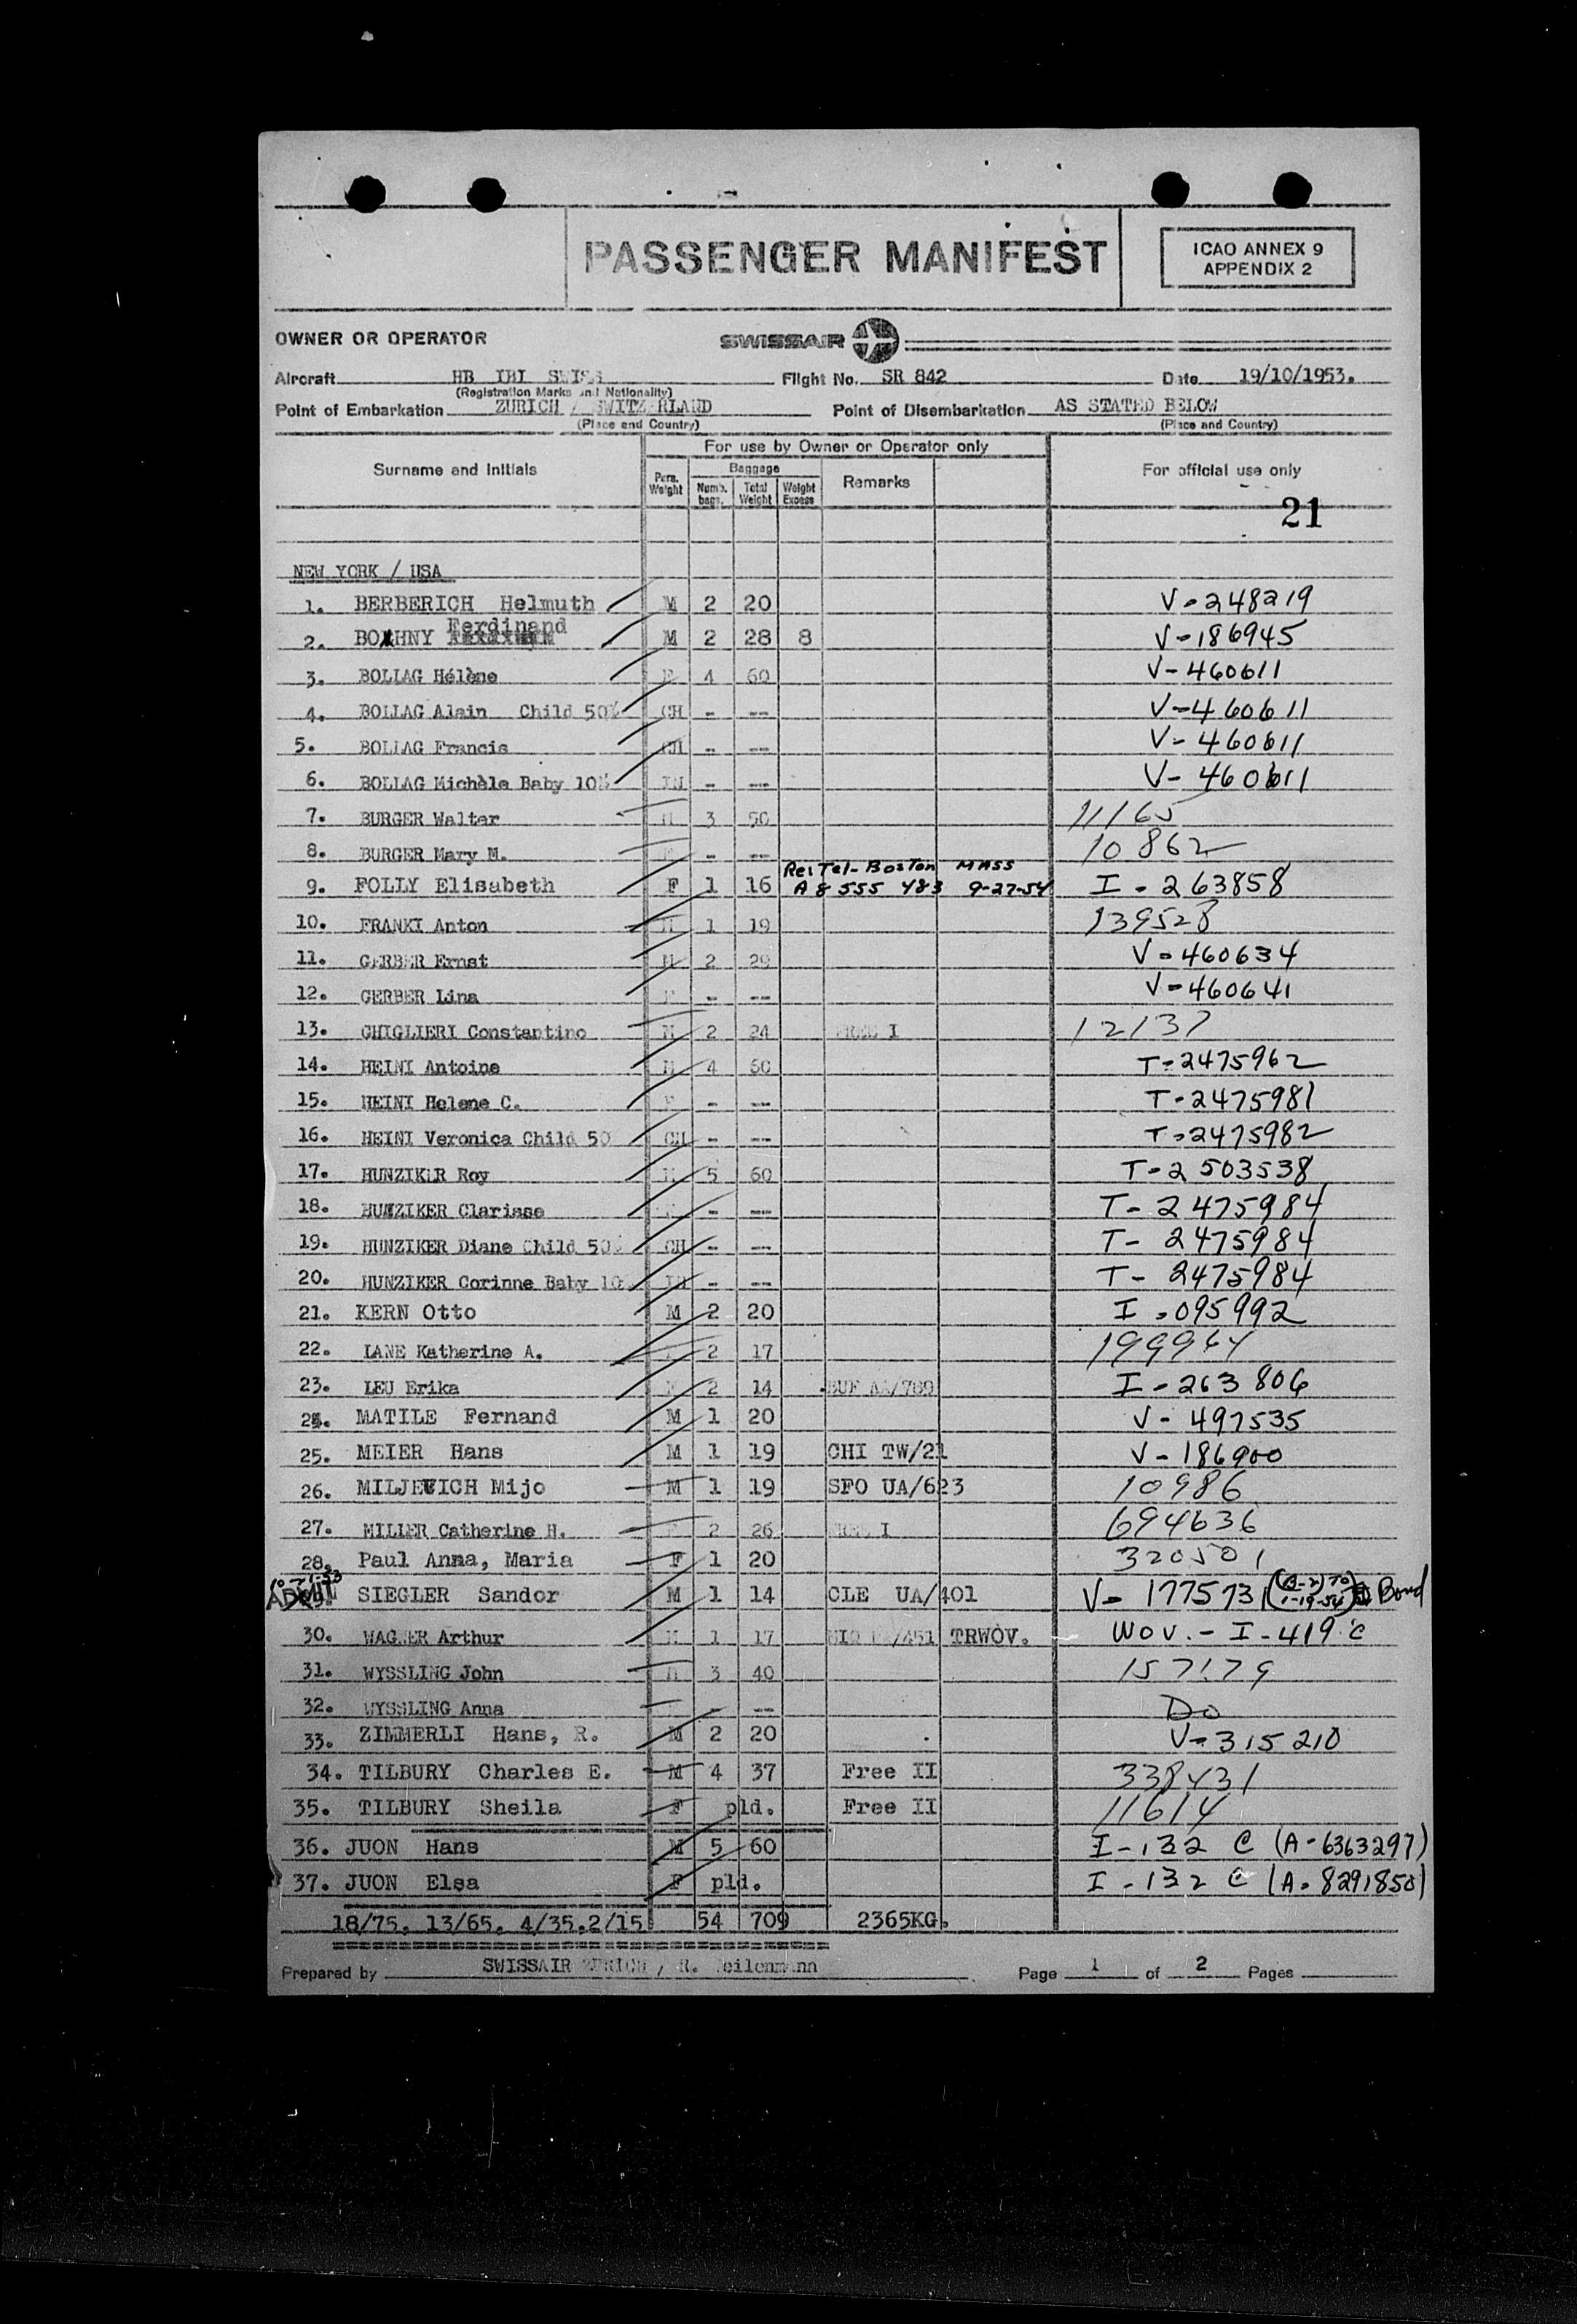 PASSENGER MANIFEST
ICAO ANNEX 9
APPENDIX 2
OWNER OR OPERATOR SWISSAIR
Aircraft HB IBI SWISS Flight No. SR 842 Date 19/10/1953.
(Registration Marks and Nationality)
Point of Embarkation ZURICH / SWITZERLAND Point of Disembarkation AS STATED BELOW
(Place and Country) (Place and Country)
Surname and Initials For use by Owner or Operator only For official use only
Pers. Weight Baggage Numb. bags. Total Weight Weight Excess Remarks
21
NEW YORK / USA
1. BERBERICH Helmuth M 2 20 V-248219
2. BOXHNY Ferdinand M 2 28 8 V-186945
3. BOLLAG Hélène F 4 60 V-460611
4. BOLLAG Alain Child 50% CH - -- V-460611
5. BOLLAG Francis CH - -- V-460611
6. BOLLAG Michèle Baby 10% IN - -- V-460611
7. BURGER Walter M 3 50 11165
8. BURGER Mary M. F - -- 10862
Rei Tel-Boston MASS
9. FOLLY Elisabeth F 1 16 A8 555 483 9-27-54 I-263858
10. FRANKI Anton M 1 19 139528
11. GERBER Ernst M 2 29 V-460634
12. GERBER Lina F - -- V-460641
13. GHIGLIERI Constantino M 2 24 FREE I 12137
14. HEINI Antoine M 4 60 T-2475962
15. HEINI Helene C. F - -- T-2475981
16. HEINI Veronica Child 50 CH - -- T-2475982
17. HUNZIKER Roy M 5 60 T-2503538
18. HUNZIKER Clarisse - -- T-2475984
19. HUNZIKER Diane Child 50% CH - -- T-2475984
20. HUNZIKER Corinne Baby 10% IN - -- T-2475984
21. KERN Otto M 2 20 I-095992
22. LANE Katherine A. F 2 17 199964
23. LEU Erika F 2 14 BUF AA/789 I-263806
24. MATILE Fernand M 1 20 V-497535
25. MEIER Hans M 1 19 CHI TW/21 V-186900
26. MILJEVICH Mijo M 1 19 SFO UA/623 10986
27. MILLER Catherine H. F 2 26 FREE I 694636
28. Paul Anna, Maria F 1 20 320501
ADMIT SIEGLER Sandor M 1 14 CLE UA/401 V-177573 (B-2) TO 1-19-54 Bond
30. WAGNER Arthur M 1 17 /451 TRWOV. WOV.-I-419 C
31. WYSSLING John M 3 40 157179
32. WYSSLING Anna - -- Do
33. ZIMMERLI Hans, R. M 2 20 V-315210
34. TILBURY Charles E. M 4 37 Free II 338431
35. TILBURY Sheila F pld. Free II 11614
36. JUON Hans M 5 60 I-132 C (A-6363297)
37. JUON Elsa F pld. I-132 C (A-8291850)
18/75. 13/65. 4/35.2/15 54 709 2365KG.
Prepared by SWISSAIR ZURICH / R. Weilenmann Page 1 of 2 Pages